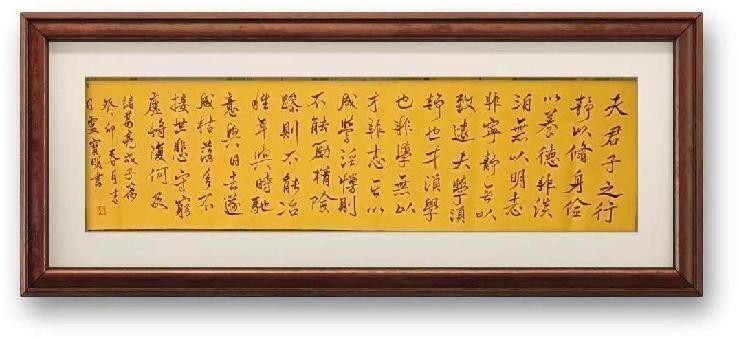 夫君子之行
靜以脩身儉
以養德非淡
泊無以明志
非寧靜无以
致遠夫學須
靜也才須學
也非學無以
才非志无以
成學淫慢則
不能勵精險
躁則不能冶
性年與時馳
意與日去遂
成枯落多不
接世悲守窮
廬將復何及
諸葛亮戒子篇
癸卯春月吉
日雲寶明書